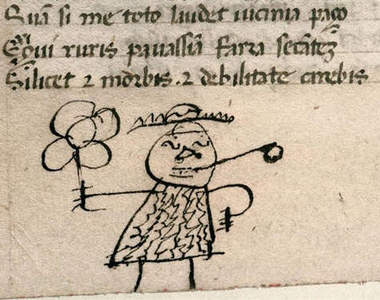 Quā si me toto laudet uicinia pago
Exigui ruris pauciſſīa farra secātēz
Scilicet ⁊ morbis . ⁊ debilitate carebis